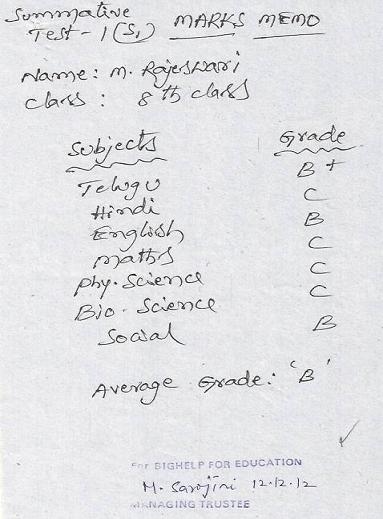 Summative
Test - 1 (S1) MARKS MEMO
Name: M. Rajeswari
Class : 8 th class
Subjects Grade
Telugu B+
Hindi C
English B
Maths C
Phy. Science C
Bio - Science C
Social B
Average Grade: 'B'
For BIGHELP FOR EDUCATION
M. Sarojini 12.12.12
MANAGING TRUSTEE